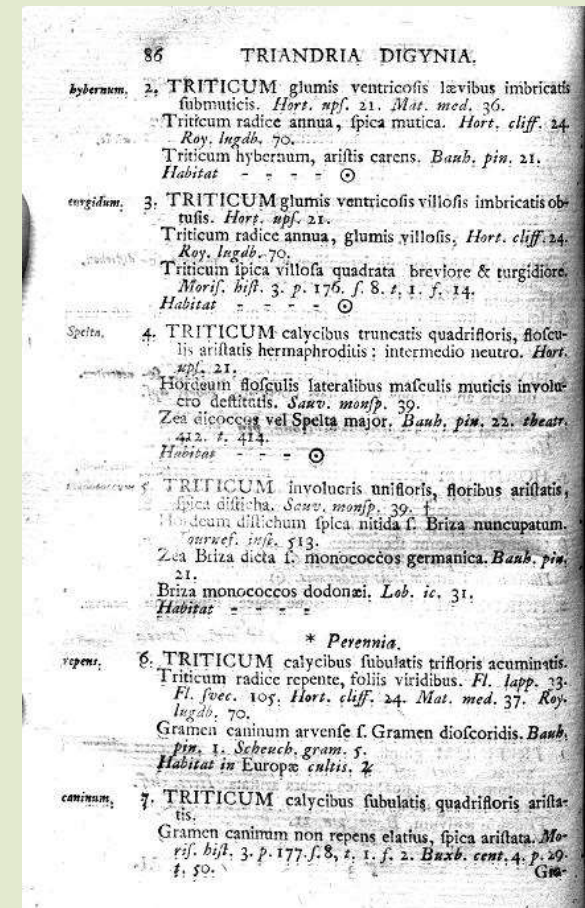 86 TRIANDRIA DIGYNIA.
hybernum. 2. TRITICUM glumis ventricoſis lævibus imbricatis
ſubmuticis. Hort. upſ. 21. Mat. med. 36.
Triticum radice annua, ſpica mutica. Hort. cliff. 24.
Roy. lugdb. 70.
Triticum hybernum, ariſtis carens. Bauh. pin. 21.
Habitat - - - - ☉
turgidum. 3. TRITICUM glumis ventricoſis villoſis imbricatis ob-
tuſis. Hort. upſ. 21.
Triticum radice annua, glumis villoſis, Hort. cliff. 24.
Roy. lugdb. 70.
Triticum ſpica villoſa quadrata breviore & turgidiore.
Moriſ. hiſt. 3. p. 176. ſ. 8. t. 1. f. 14.
Habitat - - - - ☉
Spelta. 4. TRITICUM calycibus truncatis quadrifloris, floſcu-
lis ariſtatis hermaphroditis: intermedio neutro. Hort.
upſ. 21.
Hordeum floſculis lateralibus maſculis muticis involu-
cro deſtitutis. Sauv. monſp. 39.
Zea dicoccos vel Spelta major. Bauh. pin. 22. theatr.
412. t. 414.
Habitat - - - ☉
5. TRITICUM involucris unifloris, floribus ariſtatis,
ſpica diſticha. Sauv. monſp. 39. †
Hordeum diſtichum ſpica nitida ſ. Briza nuncupatum.
Tournef. inſt. 513.
Zea Briza dicta ſ. monococcos germanica. Bauh. pin.
21.
Briza monococcos dodonæi. Lob. ic. 31.
Habitat - - - -
* Perennia.
repens. 6. TRITICUM calycibus ſubulatis trifloris acuminatis.
Triticum radice repente, foliis viridibus. Fl. lapp. 33.
Fl. ſvec. 105. Hort. cliff. 24. Mat. med. 37. Roy.
lugdb. 70.
Gramen caninum arvenſe ſ. Gramen dioſcoridis. Bauh.
pin. 1. Scheuch. gram. 5.
Habitat in Europæ cultis. ♃
caninum. 7. TRITICUM calycibus ſubulatis quadrifloris ariſta-
tis.
Gramen caninum non repens elatius, ſpica ariſtata. Mo-
riſ. hiſt. 3. p. 177. ſ. 8, t. 1. f. 2. Buxb. cent. 4. p. 29.
t. 50.
Gra-